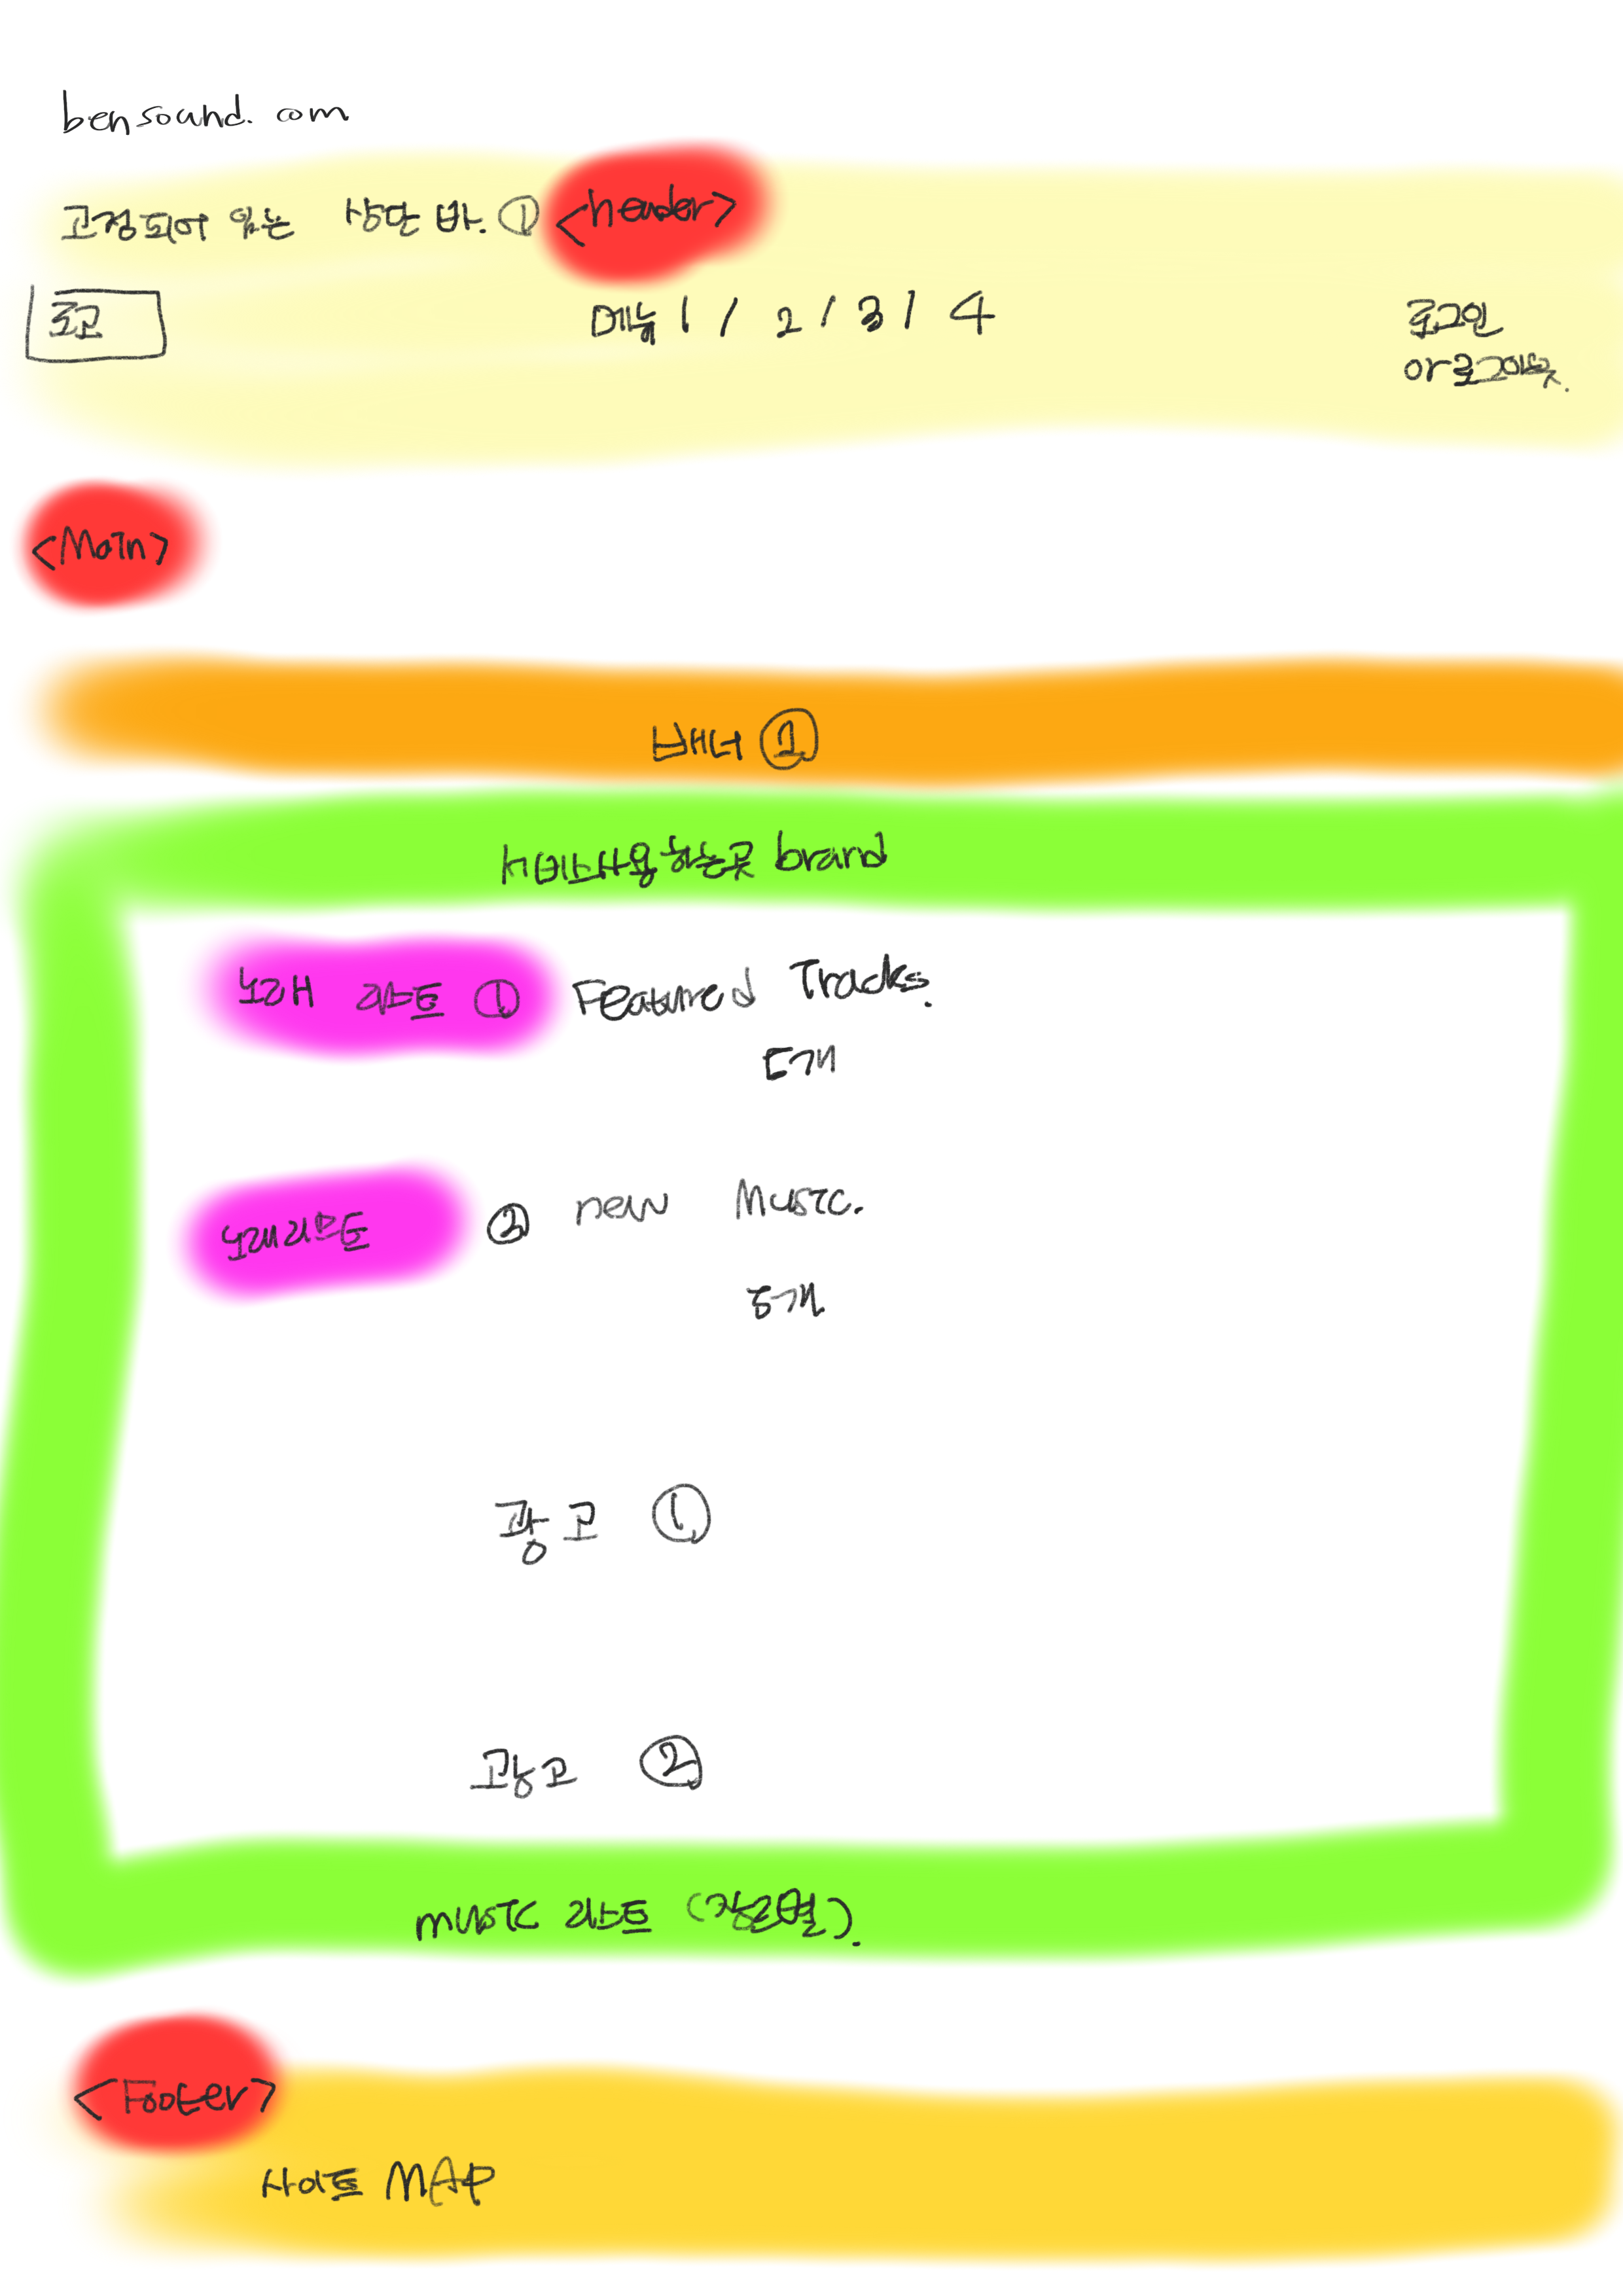 bensound. com
고정되어 있는 상단 바. ① <header>
로고 메뉴 1 / 2 / 3 / 4 로그인
or 로그아웃.
<Main>
배너 ①
서비스사용하는곳 brand
노래 리스트 ① Featured Tracks.
5개
노래리스트 ② new Music.
5개
광고 ①
광고 ②
music 리스트 (장르별).
<Footer>
사이트 MAP